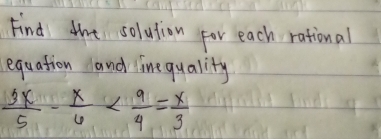 Find the solution for each rational
equation and inequality
3x/5 - x/6 < 9/4 = x/3